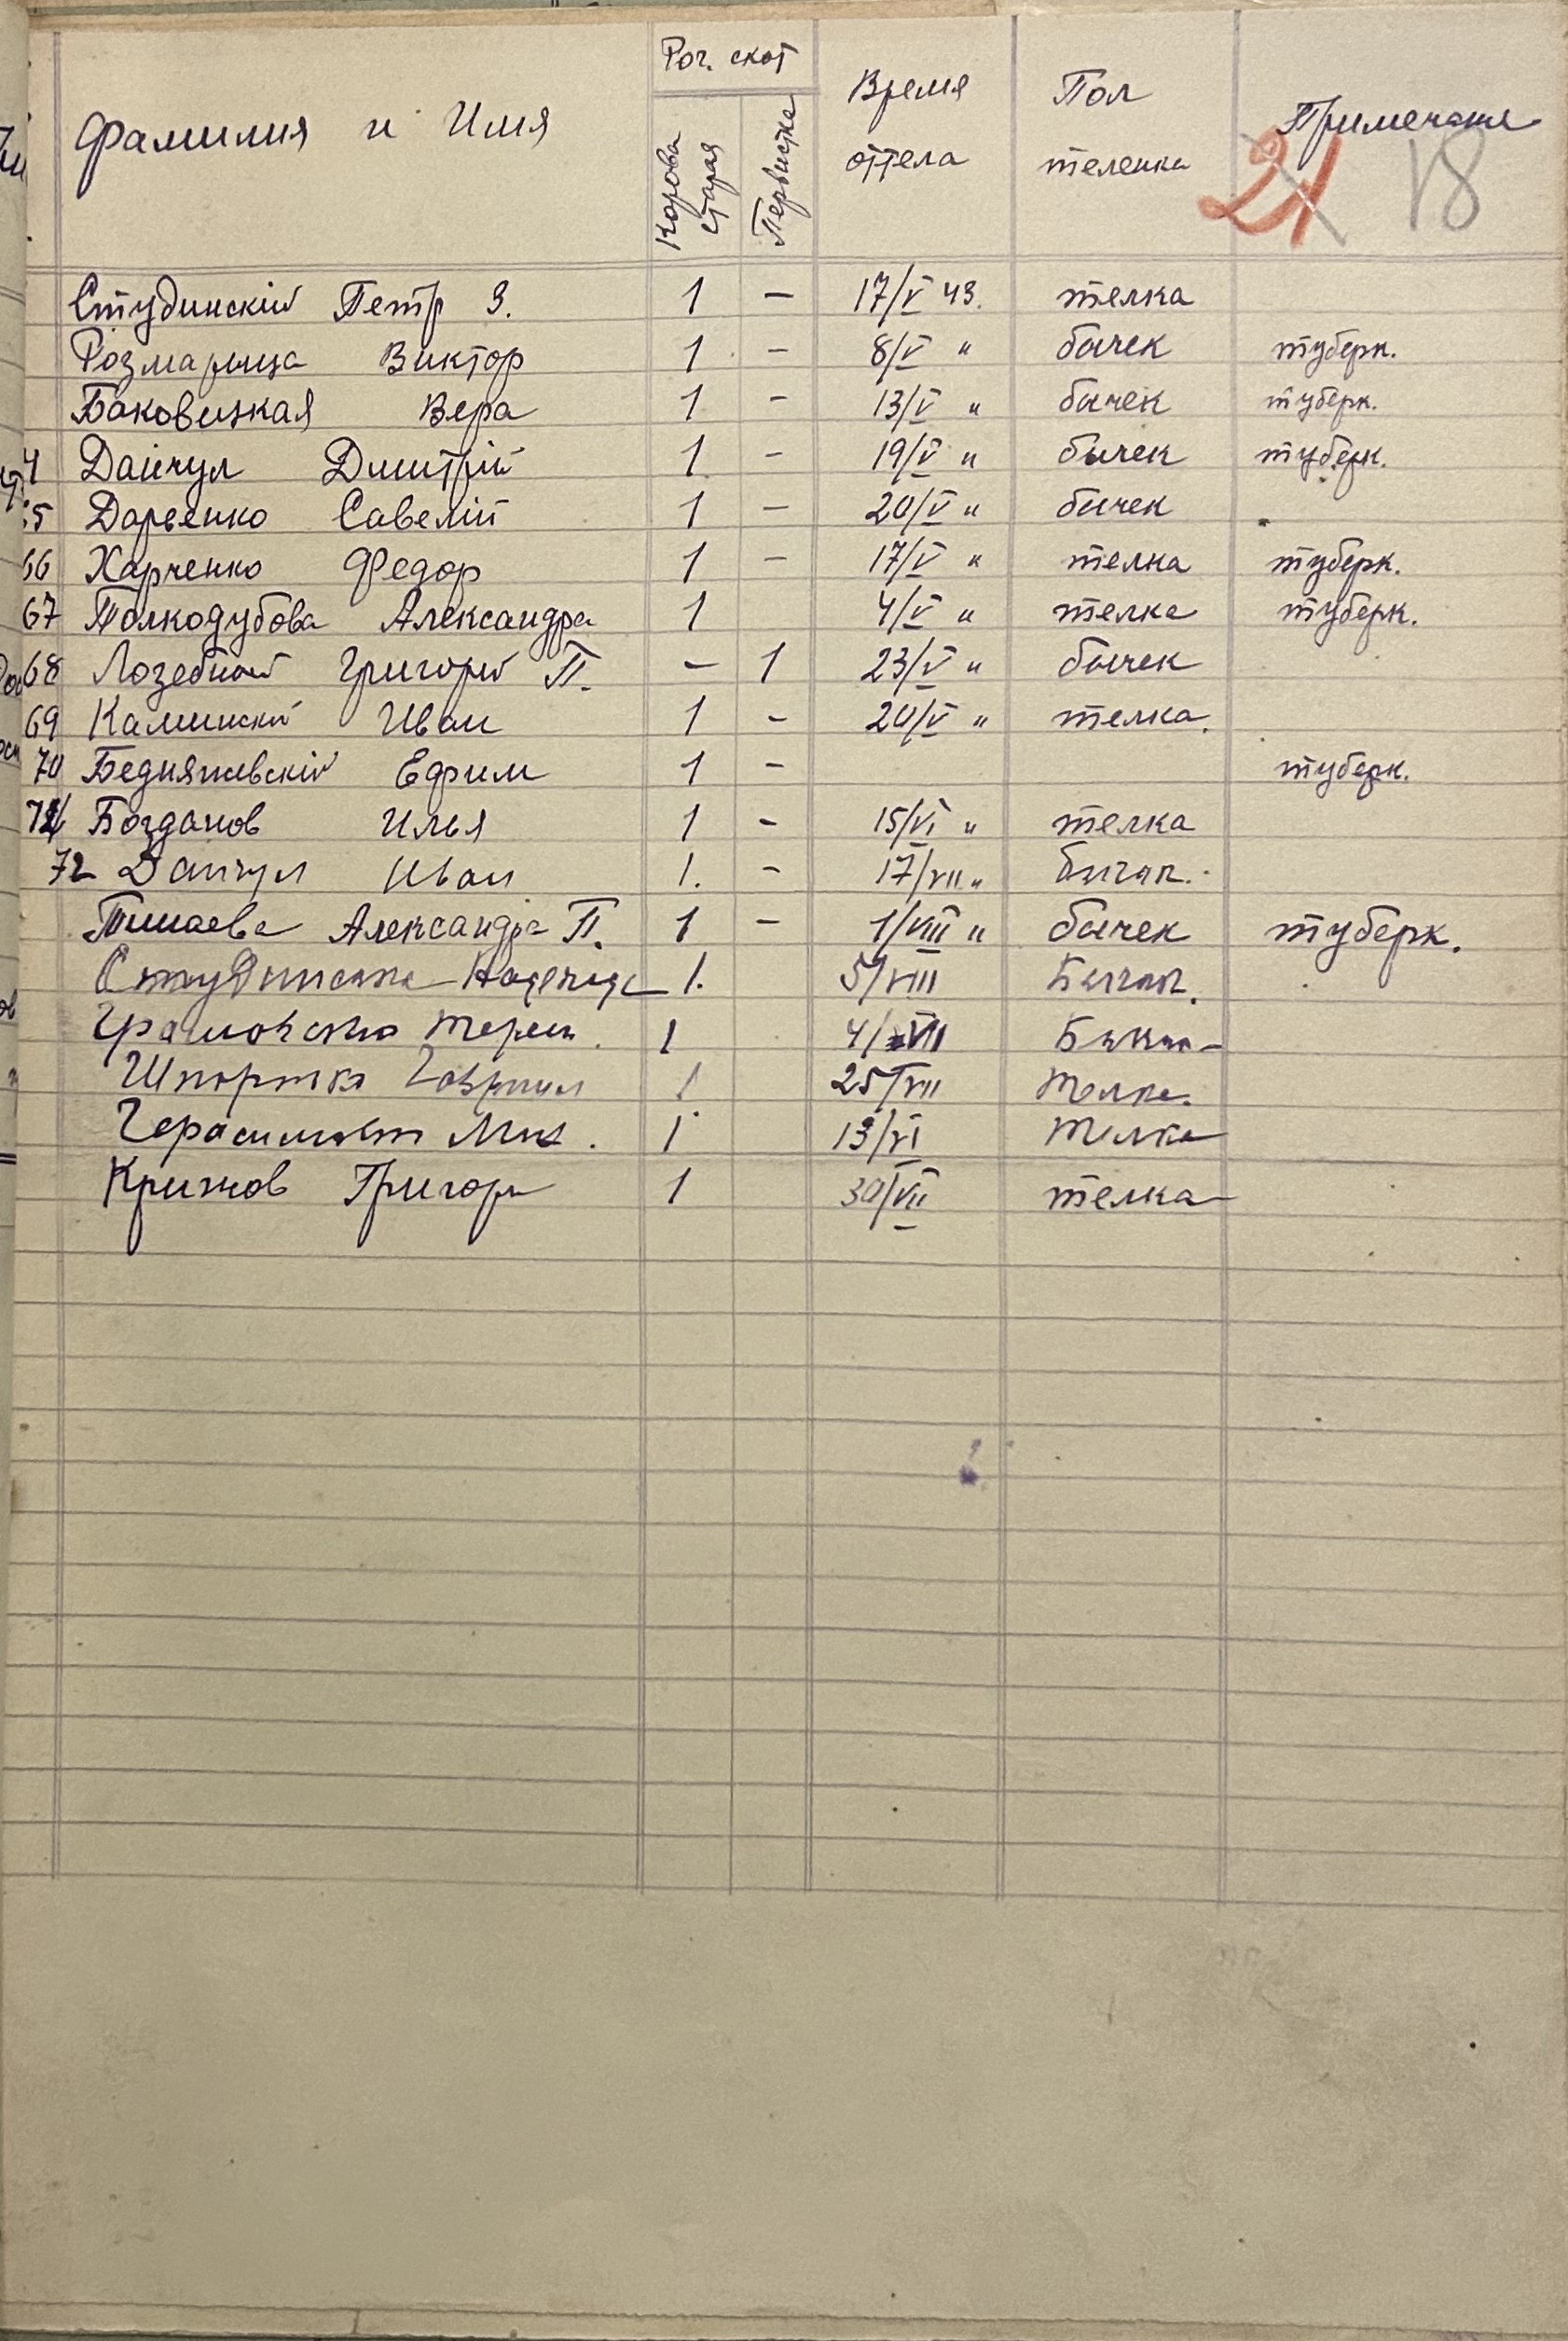 Рог. скот
Фамилия и Имя
Корова старая
Первистка
Время отела
Пол теленка
Примечание
21 18
Студинскій Петр З. 1 – 17/V 43. телка
Розмарица Виктор 1 – 8/V " бычек туберк.
Баковицкая Вера 1 – 13/V " бычек туберк.
4 Дайчул Дмитрій 1 – 19/V " бычек туберк.
65 Дарьенко Савелій 1 – 20/V " бычек
66 Харченко Федор 1 – 17/V " телка туберк.
67 Полкодубова Александра 1 4/V " телка туберк.
68 Лозебной Григорій П. – 1 23/V " бычек
69 Каминскій Иван 1 – 20/V " телка.
70 Бедняжевскій Ефим 1 – туберк.
71 Богданов Илья 1 – 15/VI " телка
72 Дайчул Иван 1. – 17/VII "
Тишаева Александра П. 1 – 1/VIII " бычек туберк.
Надежда 1. 5/VIII
1 4/VII
Шпортко Гавриил 1 25/VII Телка.
1 13/VI Телка
Крижов Григори 1 30/VII телка